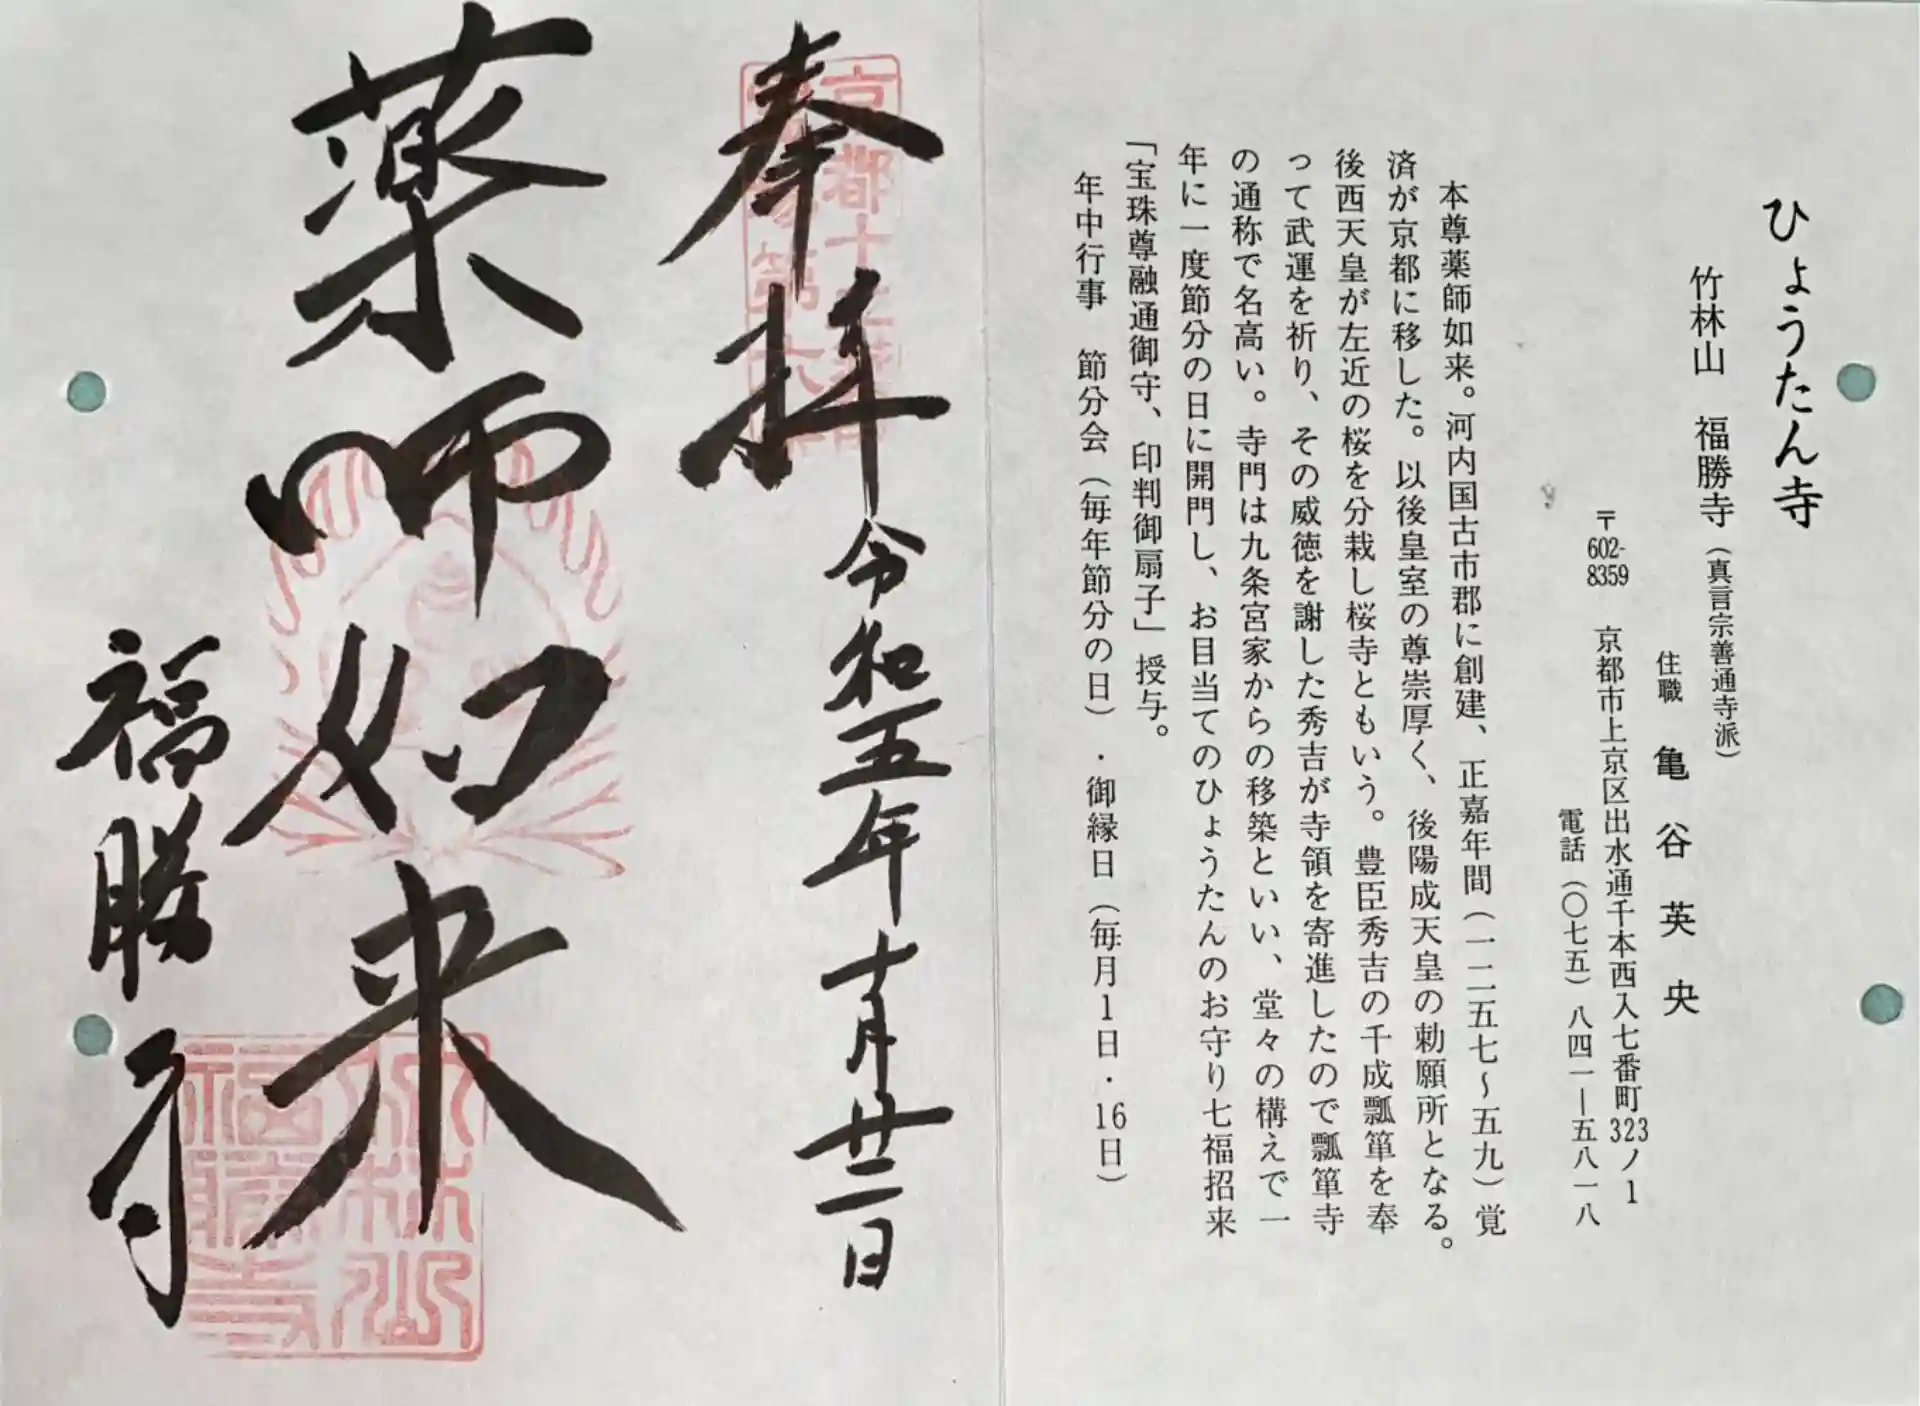 ひょうたん寺
竹林山 福勝寺(真言宗善通寺派)
住職 亀谷英央
〒602-8359 京都市上京区出水通千本西入七番町323ノ1
電話(〇七五)八四一ー五八一八
本尊薬師如来。河内国古市郡に創建、正嘉年間(一二五七〜五九)覚
済が京都に移した。以後皇室の尊崇厚く、後陽成天皇の勅願所となる。
後西天皇が左近の桜を分栽し桜寺ともいう。豊臣秀吉の千成瓢箪を奉
って武運を祈り、その威徳を謝した秀吉が寺領を寄進したので瓢箪寺
の通称で名高い。寺門は九条宮家からの移築といい、堂々の構えで一
年に一度節分の日に開門し、お目当てのひょうたんのお守り七福招来
「宝珠尊融通御守、印判御扇子」授与。
年中行事 節分会(毎年節分の日)・御縁日(毎月1日・16日)
奉拝
令和五年十月廿二日
薬師如来
福勝寺
竹林山
福勝寺